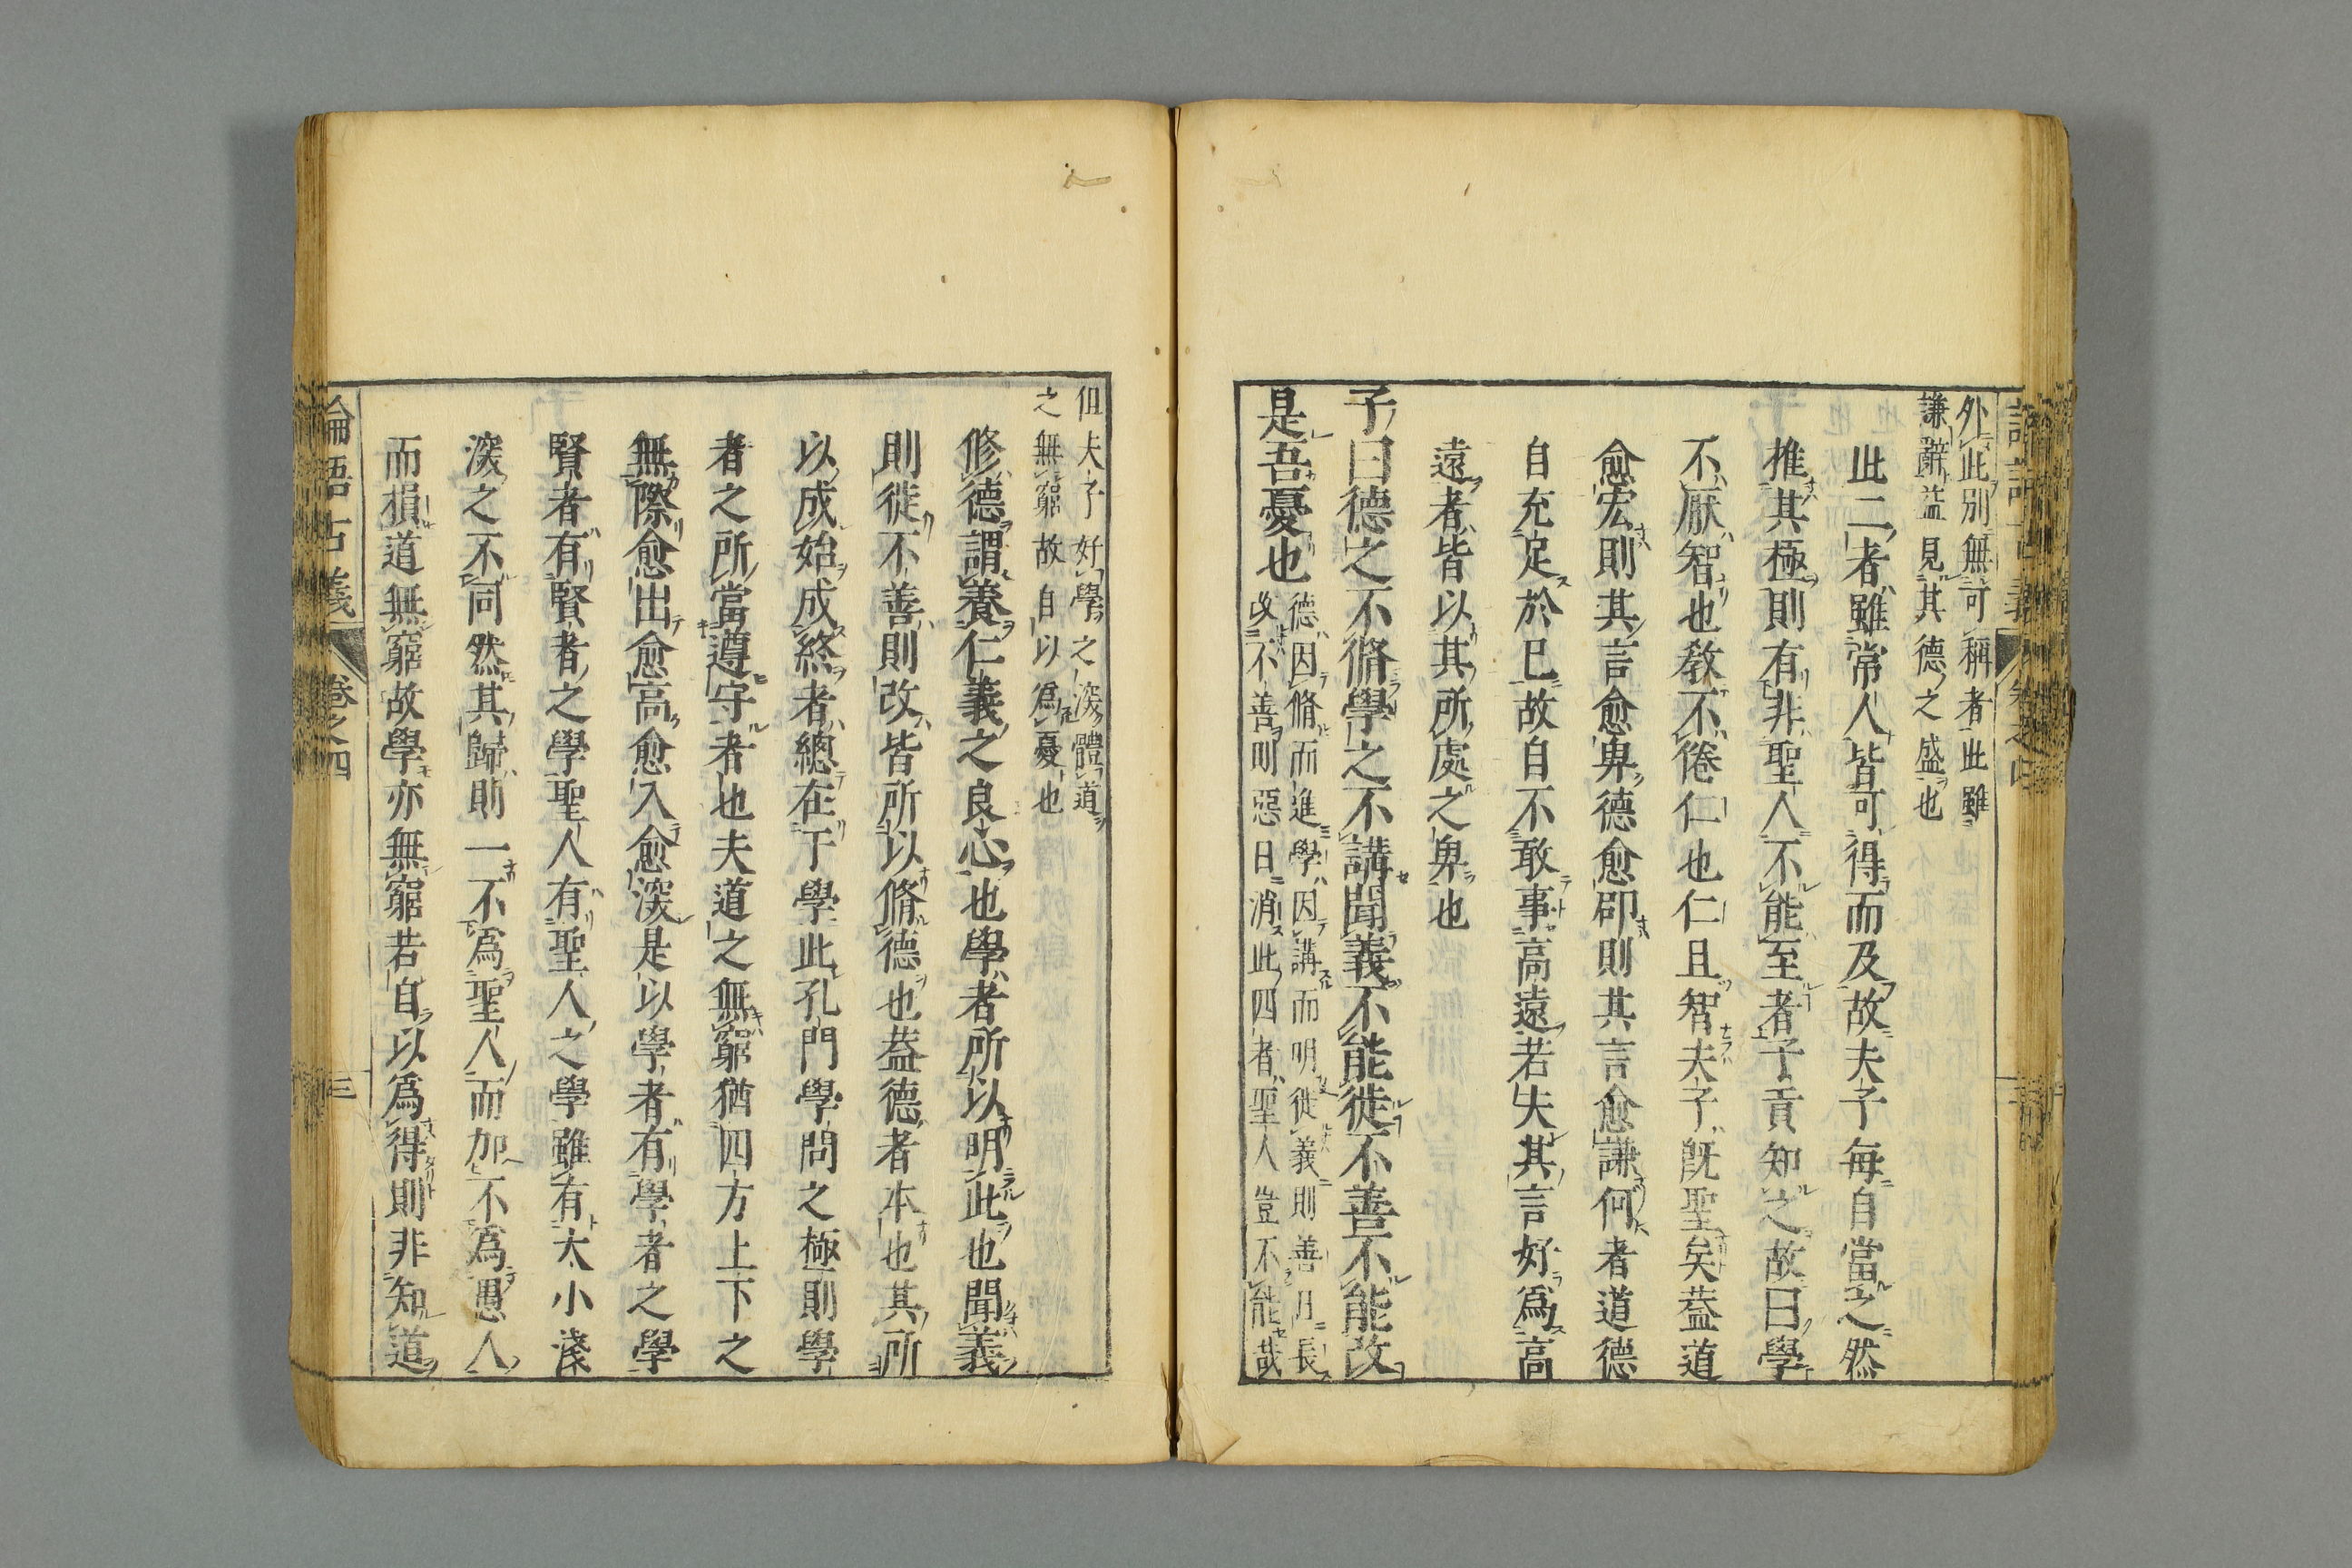 外此別無可稱者此雖
謙辭益見其德之盛也
此二者雖常人皆可得而及故夫子每自當之然
推其極則有非聖人不能至者子貢知之故曰學
不厭智也教不倦仁也仁且智夫子既聖矣葢道
愈宏則其言愈卑德愈卲則其言愈謙何者道德
自充足於己故自不敢事高遠若夫其言好爲高
遠者皆以其所處之卑也
子曰德之不脩學之不講聞義不能徙不善不能改
是吾憂也
德因脩而進學因講而明徙義則善日長
改不善則惡日消此四者聖人豈不能哉
但夫子好學之深體道
之無窮故自以爲憂也
修德謂養仁義之良心也學者所以明此也聞義
則徙不善則改皆所以脩德也葢德者本也其所
以成始成終者總在于學此孔門學問之極則學
者之所當遵守者也夫道之無窮猶四方上下之
無際愈出愈高愈入愈深是以學者有學者之學
賢者有賢者之學聖人有聖人之學雖有大小淺
深之不同然其歸則一不爲聖人而加不爲愚人
而損道無窮故學亦無窮若自以爲得則非知道
論語古義
卷之四
三